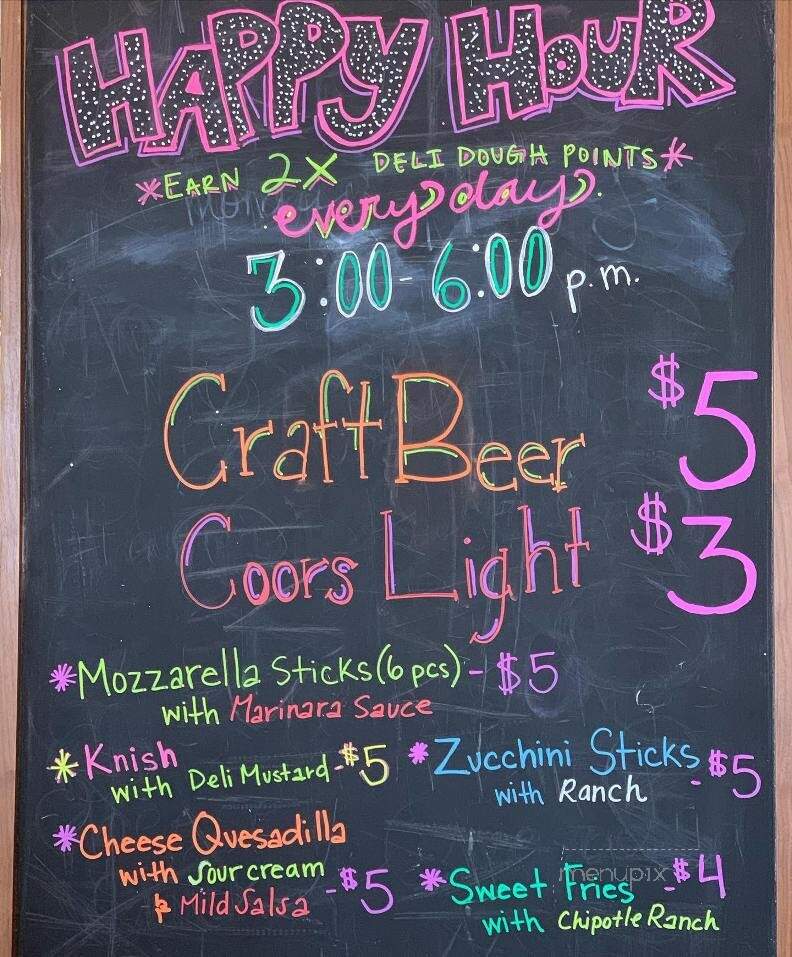 HAPPY HOUR
*EARN 2X DELI DOUGH POINTS*
every day
3:00-6:00 p.m.
Craft Beer $5
Coors Light $3
*Mozzarella Sticks (6 pcs) - $5
with Marinara Sauce
*Knish
with Deli Mustard - $5
*Zucchini Sticks - $5
with Ranch
*Cheese Quesadilla
with Sour cream
& Mild Salsa - $5
*Sweet Fries - $4
with Chipotle Ranch
menupix